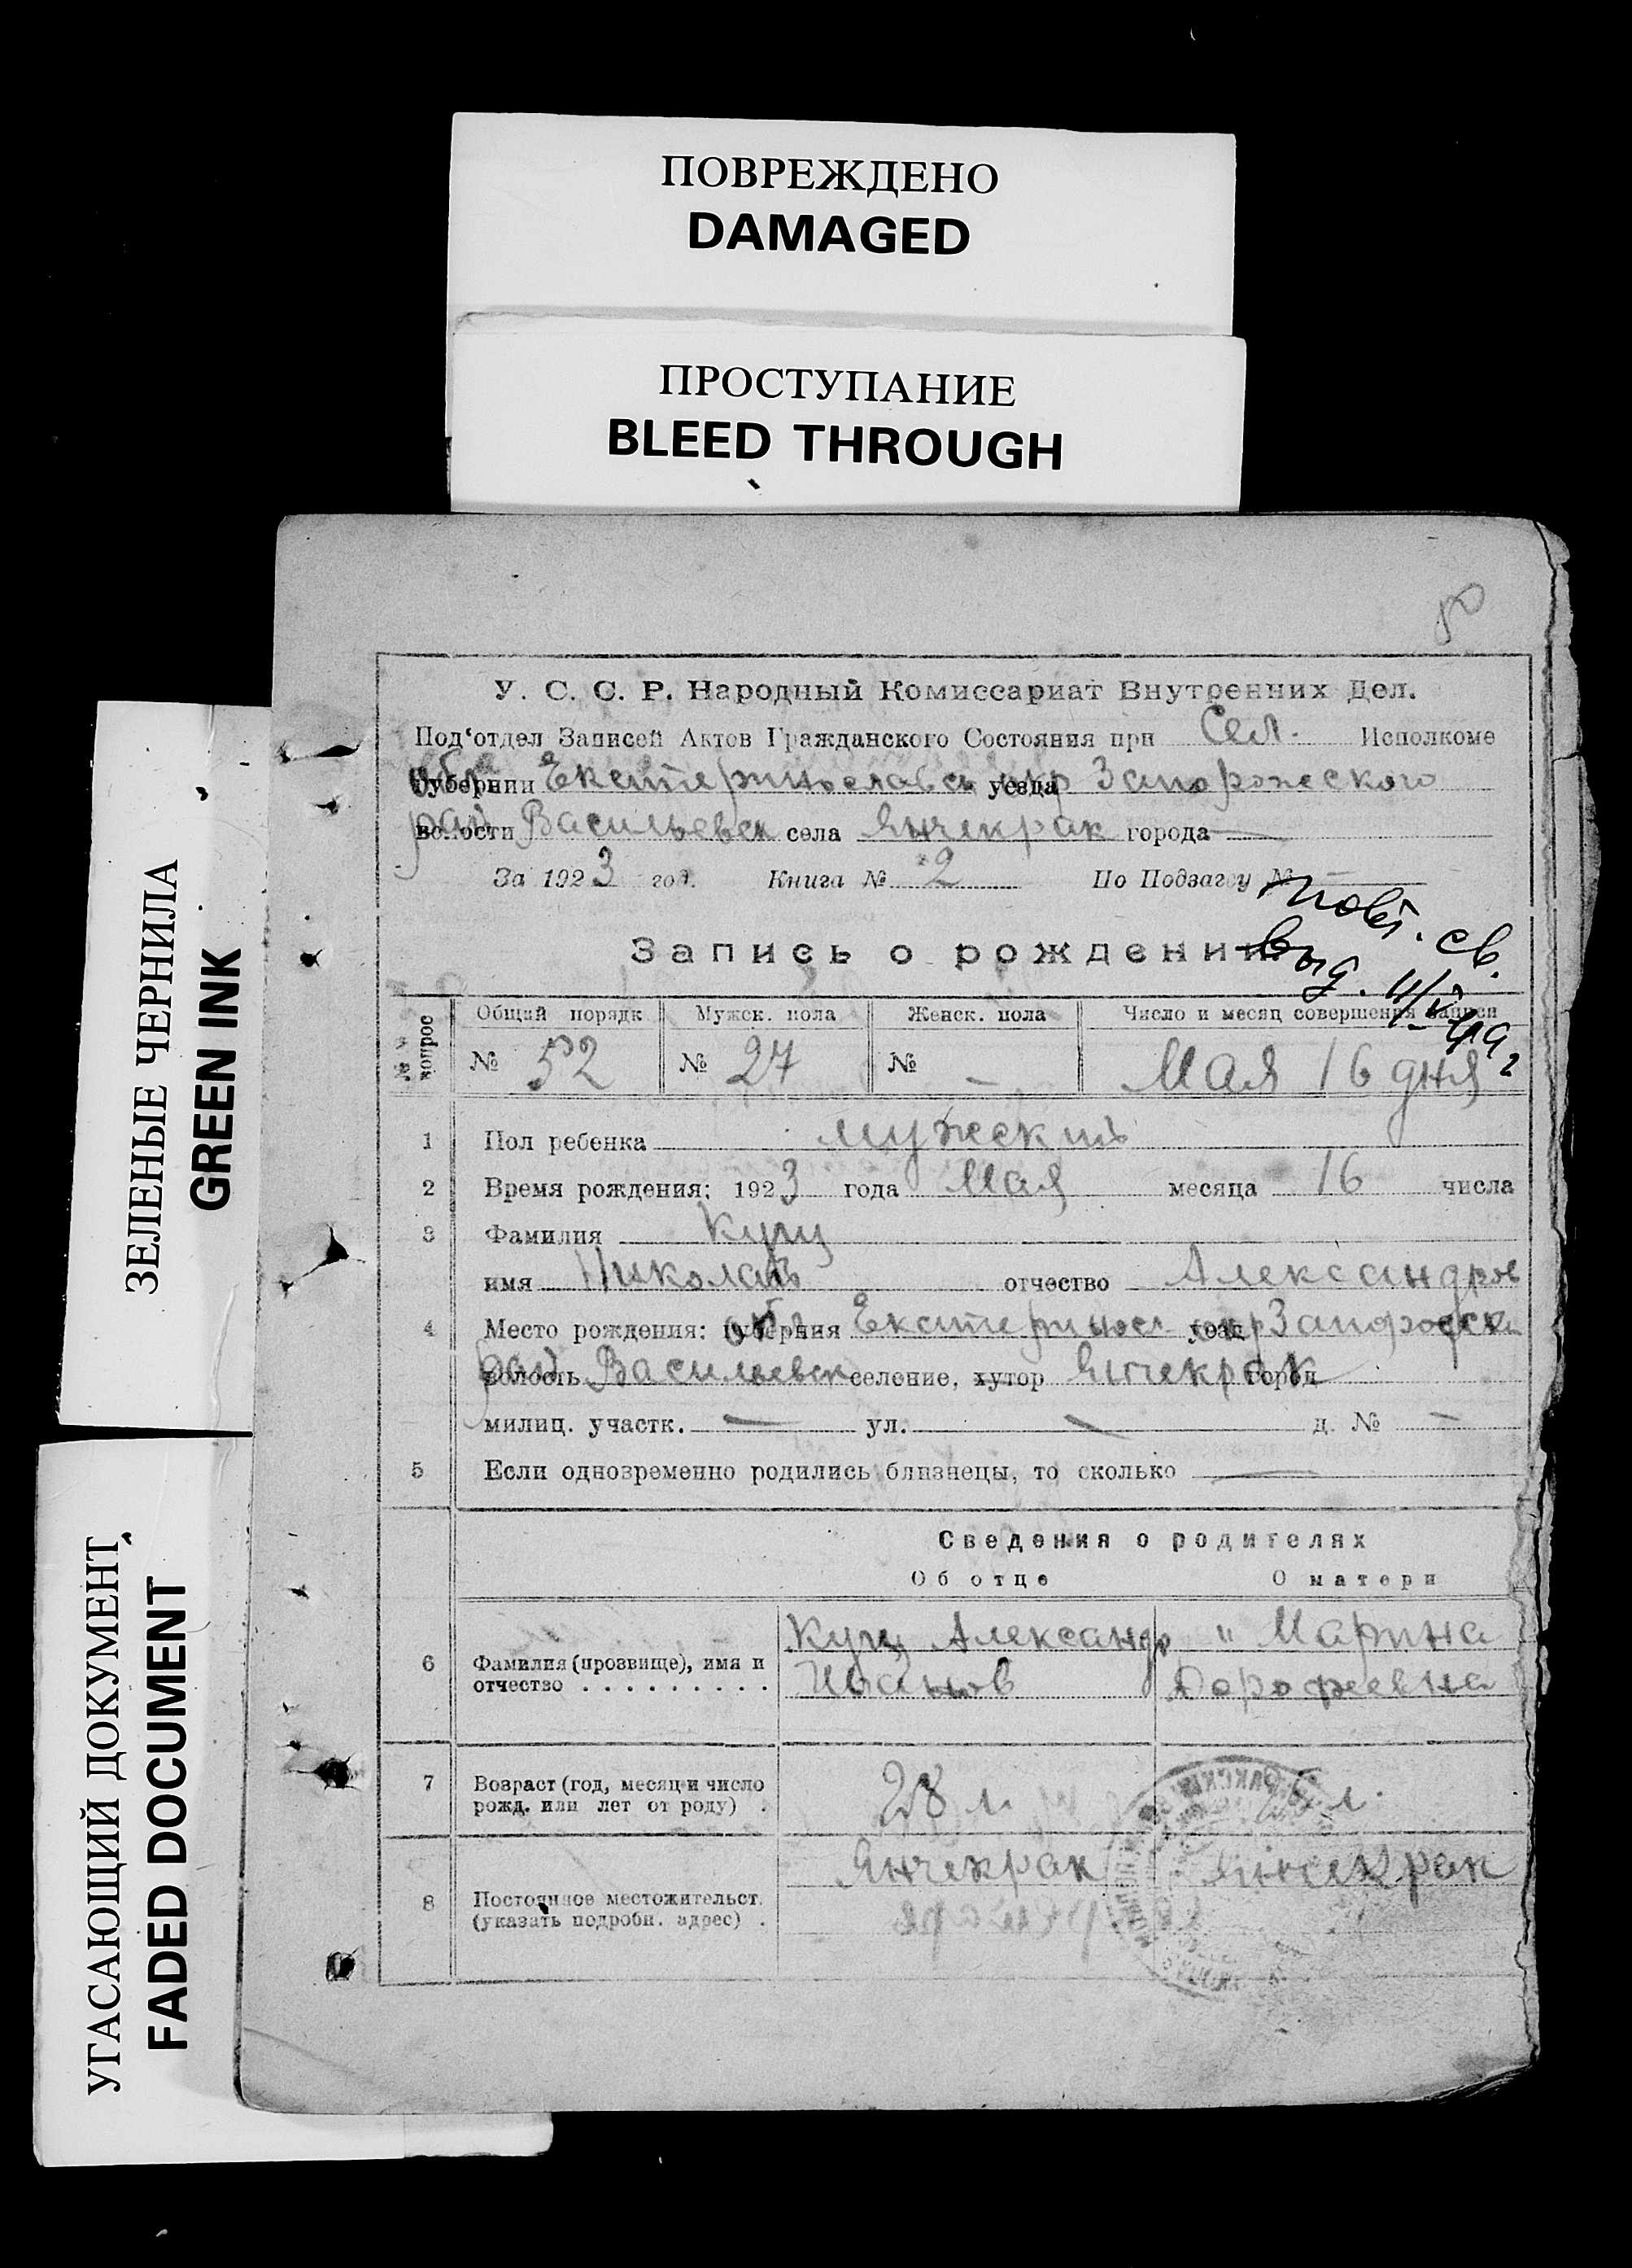 ПОВРЕЖДЕНО
DAMAGED
ПРОСТУПАНИЕ
BLEED THROUGH
ЗЕЛЕНЫЕ ЧЕРНИЛА
GREEN INK
УГАСАЮЩИЙ ДОКУМЕНТ
FADED DOCUMENT
У. С. С. Р. Народный Комиссариат Внутренних Дел.
Под'отдел Записей Актов Гражданского Состояния при Сел. Исполкоме
Губернии Екатеринославск уезда окр Запорожского
волости рай Васильевск села Янчекрак города —
За 1923 год. Книга № 2 По Подзагсу № —
повт. св.
Запись о рождении
выд.
№ № вопрос
Общий порядк Мужск. пола Женск. пола Число и месяц совершения записи
№ 52 № 27 № — Мая 16 дня
1 Пол ребенка мужский
2 Время рождения: 1923 года Мая месяца 16 числа
3 Фамилия Куц
имя Николай отчество Александров
4 Место рождения: губерния Екатеринос уезд окр Запорожск
волость рай Васильевск селение, хутор Янчекрак город
милиц. участк. — ул. — д. № —
5 Если одновременно родились близнецы, то сколько —
Сведения о родителях
Об отце О матери
6 Фамилия (прозвище), имя и отчество . . . . . . . . .
Куц Александр " Марина
Иванов Дорофеевна
7 Возраст (год, месяц и число рожд. или лет от роду) .
28 л. л.
8 Постоянное местожительст. (указать подробн. адрес) .
Янчекрак Янчекрак